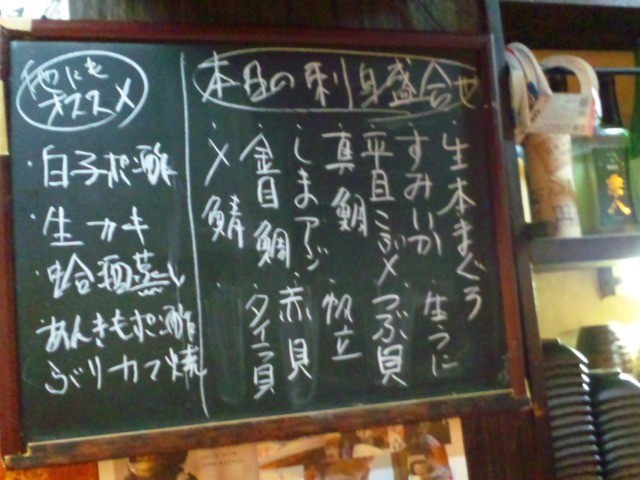 本日の刺身盛合せ
・生本まぐろ
・すみいか
・生うに
・平目こぶ〆
・つぶ貝
・真鯛
・帆立
・しまアジ
・赤貝
・金目鯛
・タイラ貝
・〆鯖
他にも
オススメ
・白子ポン酢
・生カキ
・蛤酒蒸し
あんきもポン酢
ぶりカマ焼